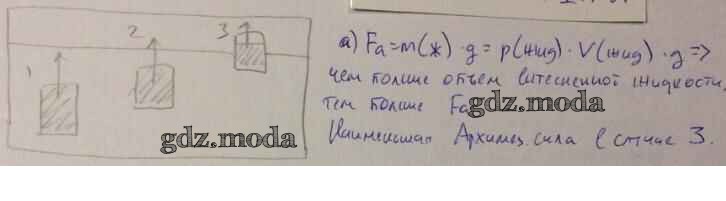 1 2 3
а) Fa = m(ж) · g = p(жид) · V(жид) · g =>
чем больше объем вытесненной жидкости,
тем больше Fa gdz.moda
gdz.moda
Наименьшая Архимед. сила в случае 3.